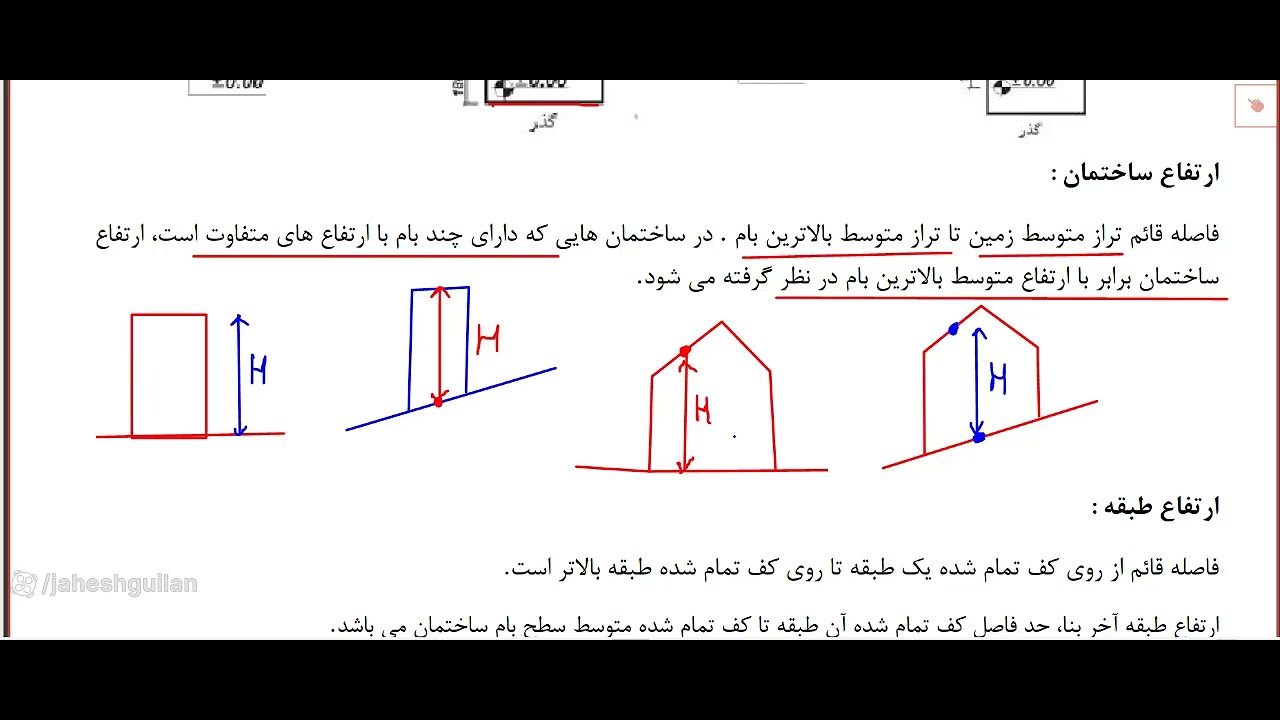 ±0.00
±0.00
±0.00
گذر
گذر
ارتفاع ساختمان :
فاصله قائم تراز متوسط زمین تا تراز متوسط بالاترین بام . در ساختمان هایی که دارای چند بام با ارتفاع های متفاوت است، ارتفاع
ساختمان برابر با ارتفاع متوسط بالاترین بام در نظر گرفته می شود.
H
H
H
H
ارتفاع طبقه :
فاصله قائم از روی کف تمام شده یک طبقه تا روی کف تمام شده طبقه بالاتر است.
ارتفاع طبقه آخر بنا، حد فاصل کف تمام شده آن طبقه تا کف تمام شده متوسط سطح بام ساختمان می باشد.
/jaheshguilan